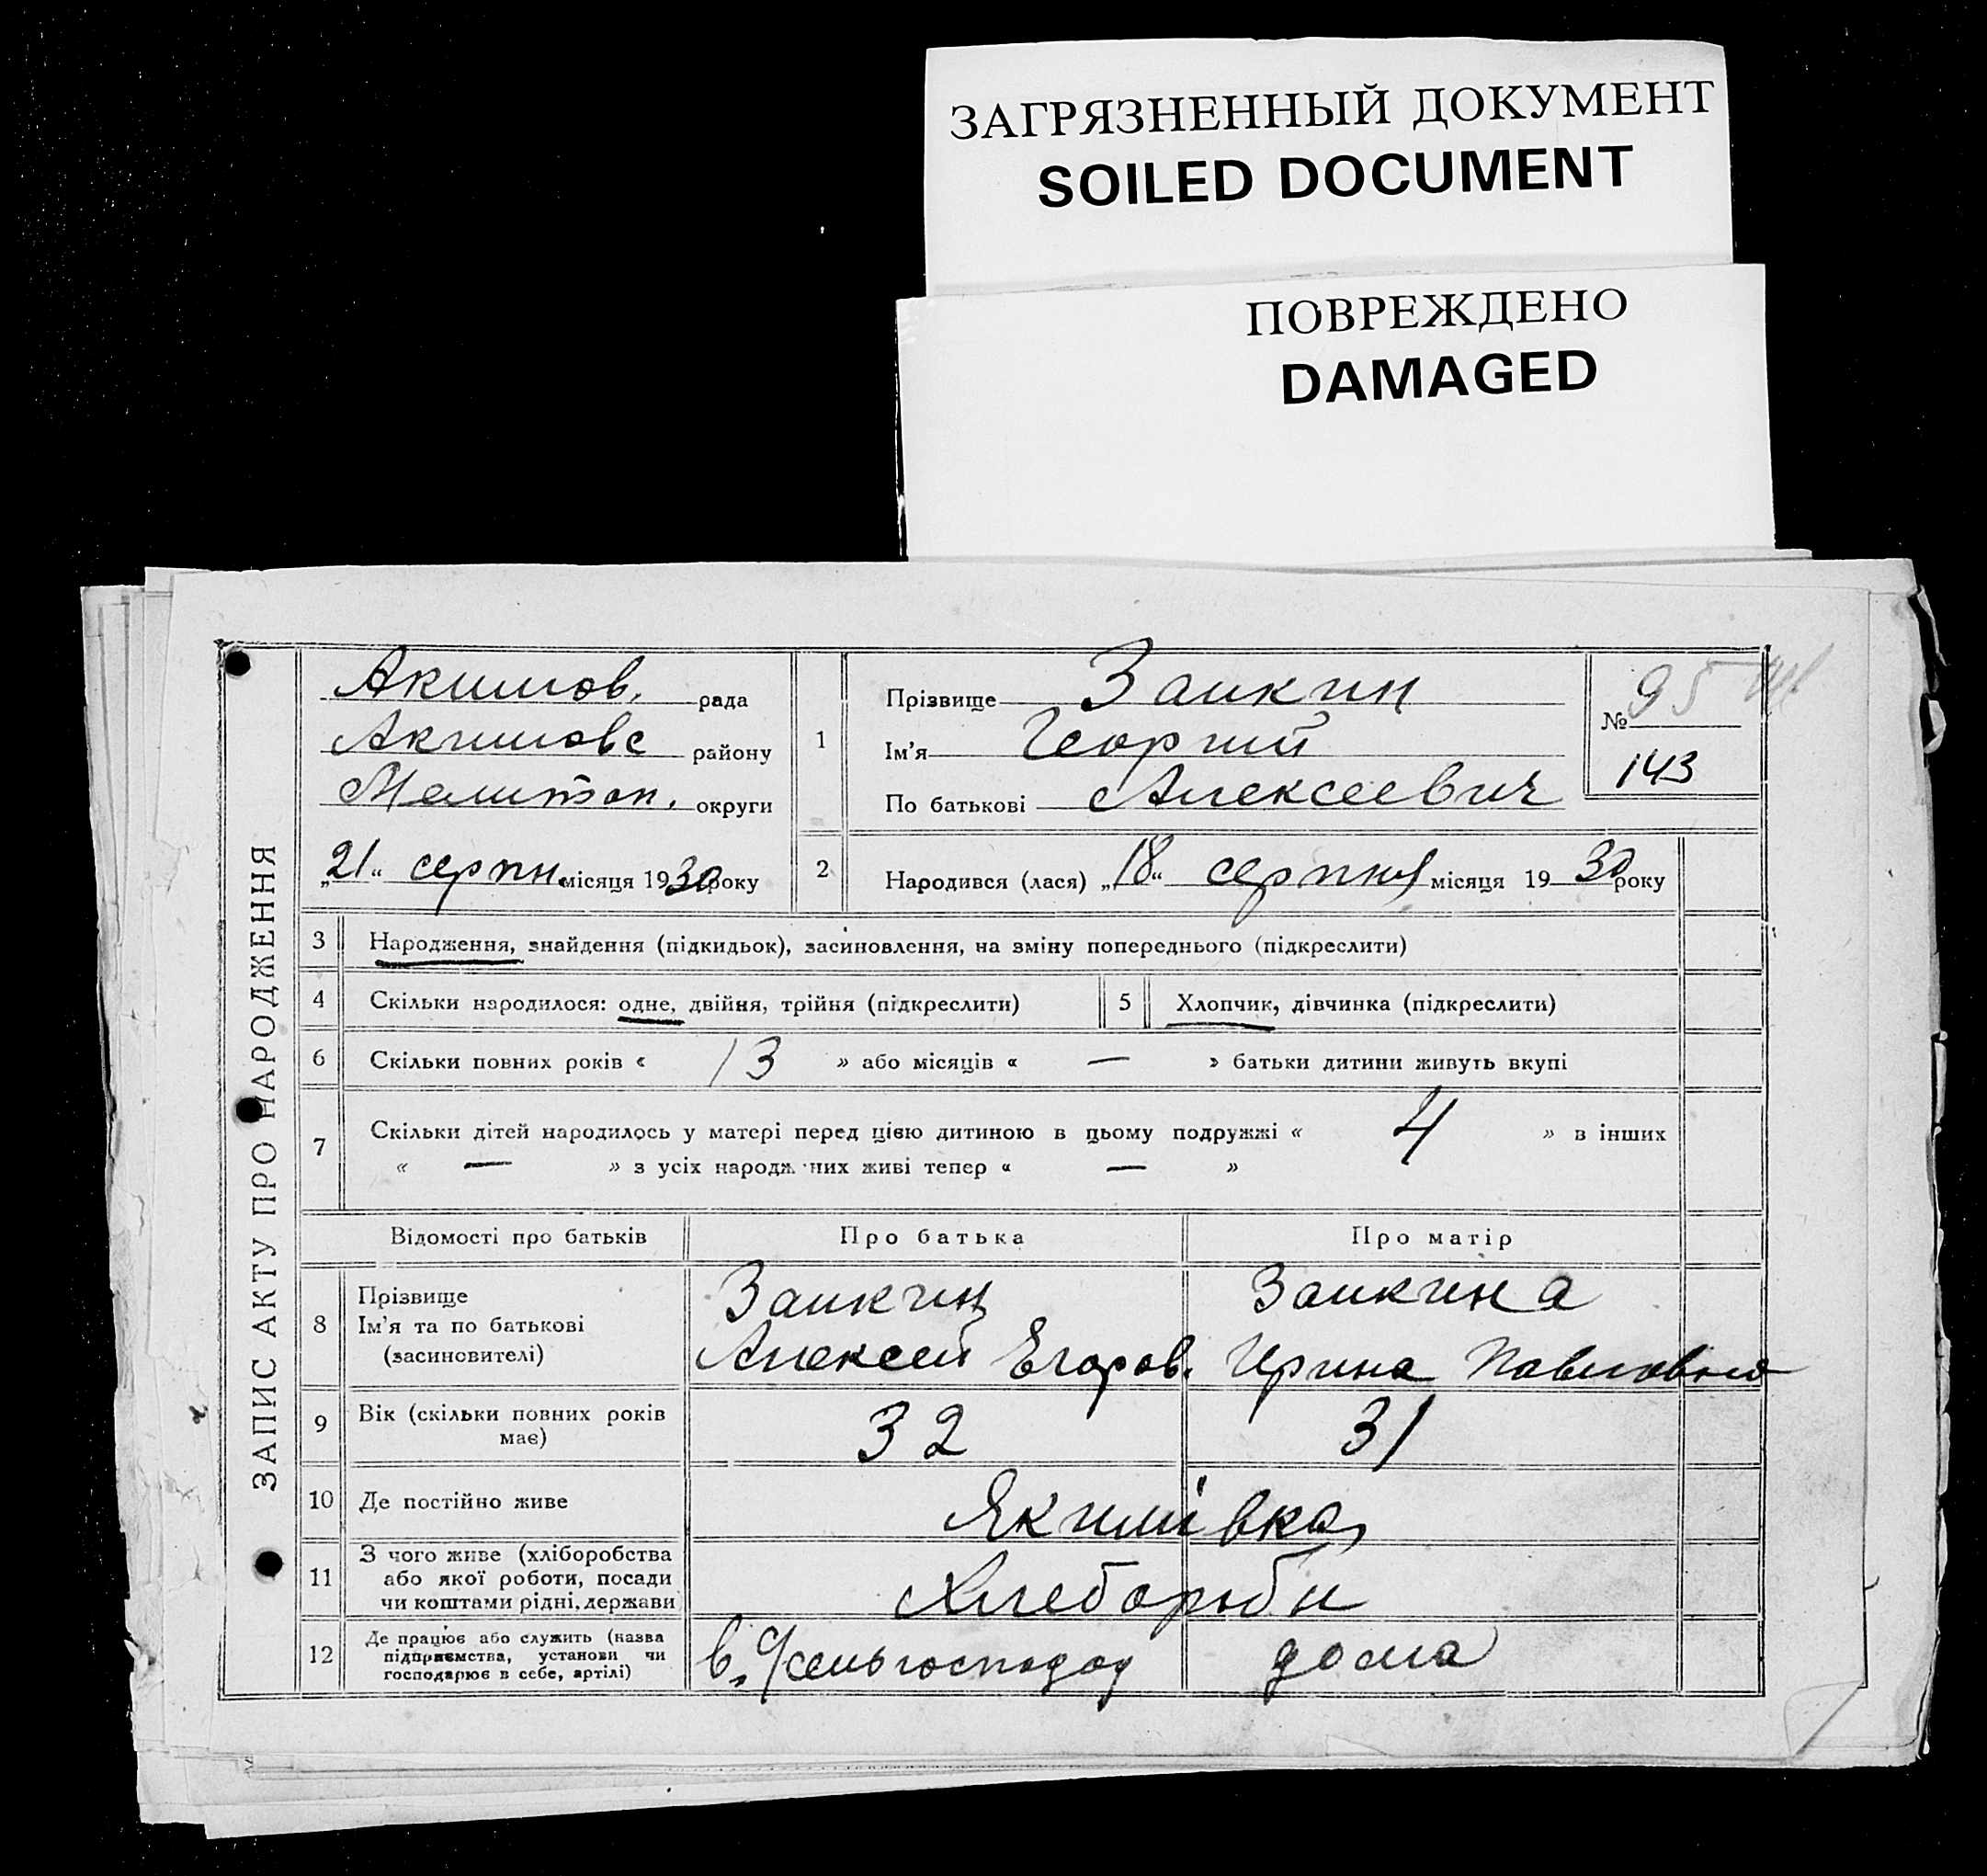 ЗАГРЯЗНЕННЫЙ ДОКУМЕНТ
SOILED DOCUMENT
ПОВРЕЖДЕНО
DAMAGED
ЗАПИС АКТУ ПРО НАРОДЖЕННЯ
Акимов. рада
Акимовс району
Мелитоп. округи
„21“ серпн. місяця 1930 року
1
Прізвище Заикин
Ім'я Георгий
По батькові Алексеевич
№ 95
143
2 Народився (лася) „18“ серпня місяця 1930 року
3 Народження, знайдення (підкидьок), засиновлення, на зміну попереднього (підкреслити)
4 Скільки народилося: одне, двійня, трійня (підкреслити) 5 Хлопчик, дівчинка (підкреслити)
6 Скільки повних років « 13 » або місяців « — » батьки дитини живуть вкупі
7 Скільки дітей народилось у матері перед цією дитиною в цьому подружжі « 4 » в інших
« — » з усіх народж них живі тепер « — »
Відомості про батьків Про батька Про матір
8 Прізвище Заикин Заикина
Ім'я та по батькові Алексей Егоров. Ирина Павловна
(засиновителі)
9 Вік (скільки повних років має) 32 31
10 Де постійно живе Якимівка
11 З чого живе (хліборобства
або якої роботи, посади
чи коштами рідні, держави Хлебороби
12 Де працює або служить (назва
підприємства, установи чи
господарює в себе, артілі) в сельгосподар дома